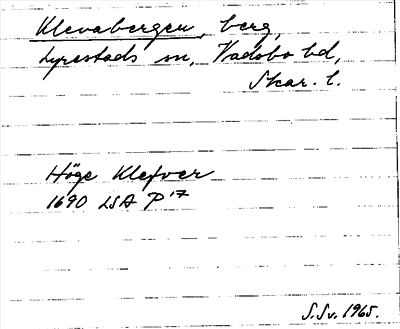 Klevabergen, berg,
Lyrestads sn, Vadsbo hd,
Skar. l.
Höge Klefver
1690 LSA P 17
S.Sv. 1965.